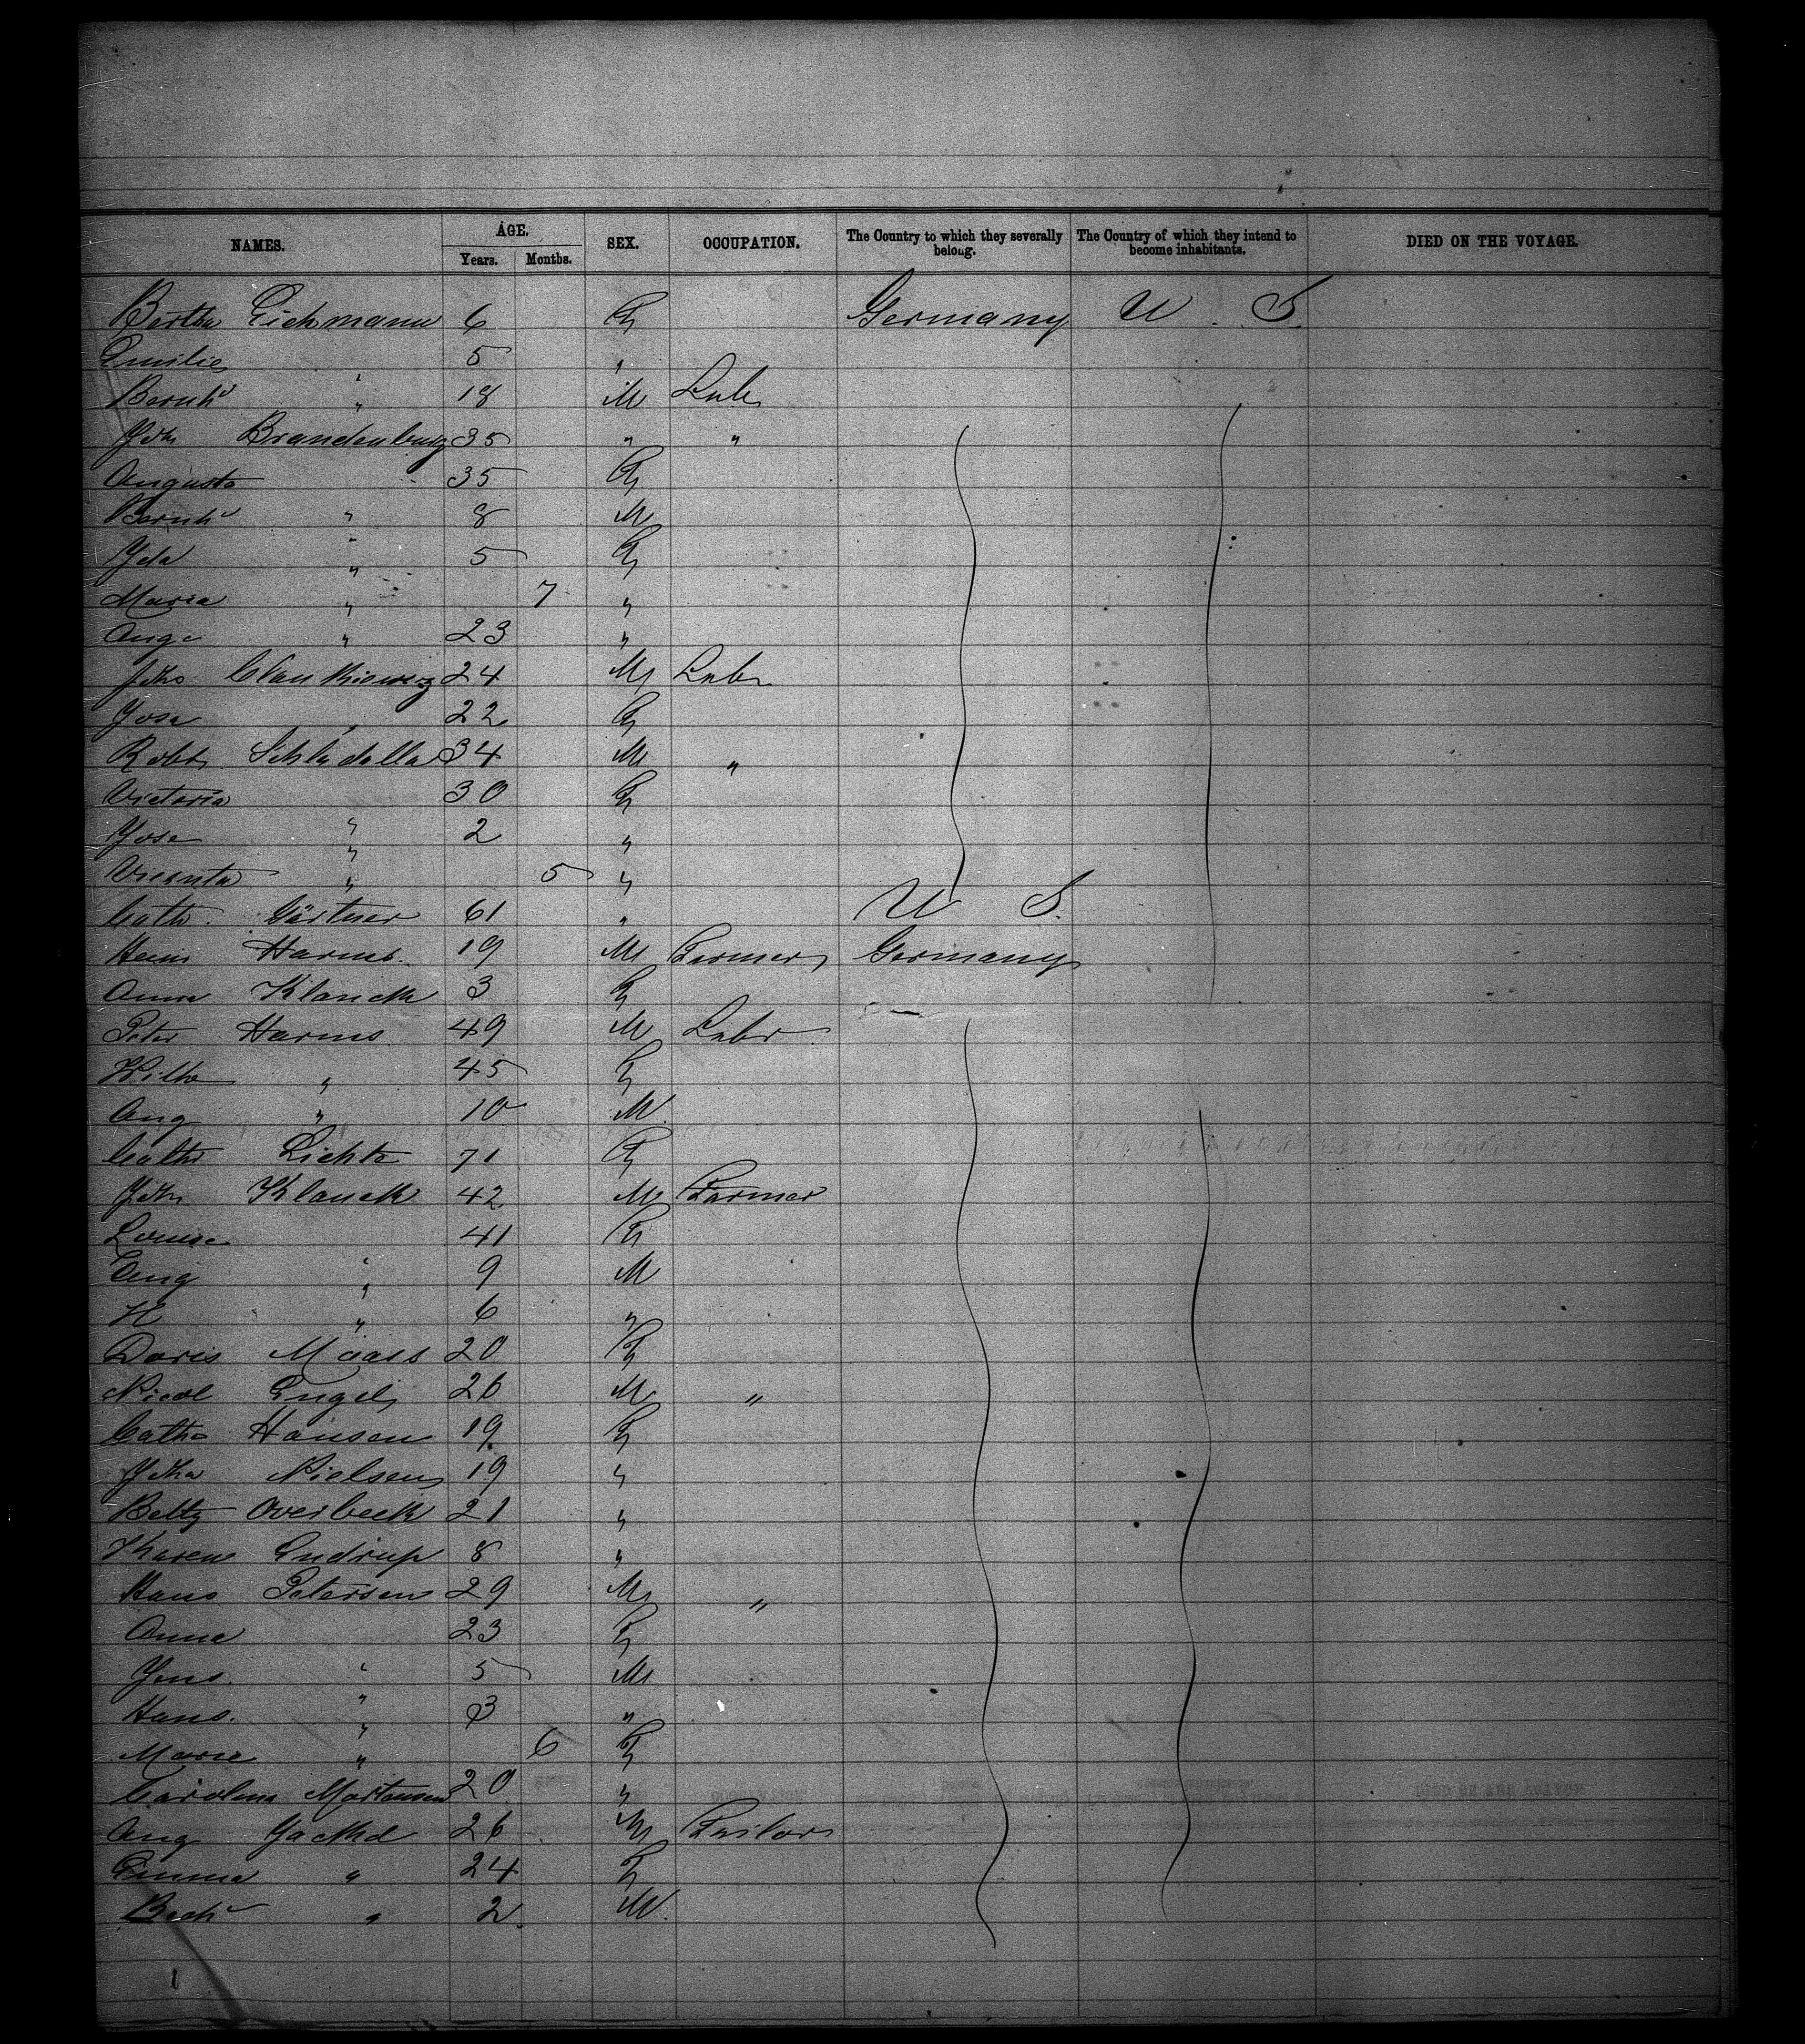 NAMES. AGE. SEX. OCCUPATION. The Country to which they severally belong. The Country of which they intend to become inhabitants. DIED ON THE VOYAGE.
Years. Months.
Bertha Eichmann 6 F Germany U. S.
Emilie " 5 "
Bernhd " 18 M Labr
Joh Brandenburg 35 " "
Augusta " 35 F
Bernhd " 8 M
Ida " 5 F
Maria " 7 "
Aug " 23 "
Johs 24 M Labr
Josa " 22 F
Robt 34 M "
Victoria " 30 F
Josa " 2 "
" 5 "
Cath. Gärtner 61 " U S.
Heinr Harms. 19 M Farmer Germany
Anna Klanck 3 F
Peter Harms. 49 M Labr
Wilhe " 45 F
Aug " 10 M
Cathe Lichte 71 F
Joh Klanck 42 M Farmer
Louise " 41 F
Aug " 9 M
H " 6 "
Doris Maass 20 F
Nicol Engel 26 M "
Catha Hansen 19 F
Joha Nielsen 19 "
Betty Overbeck 21 "
Karen Endrup 8 "
Hans Petersen 29 M "
Anna " 23 F
Jens. " 5 M
Hans. " 3 "
Marie " 6 F
Carolina Mortensen 20 "
Aug 26 M Tailor
Emma " 24 F
" 2 M.